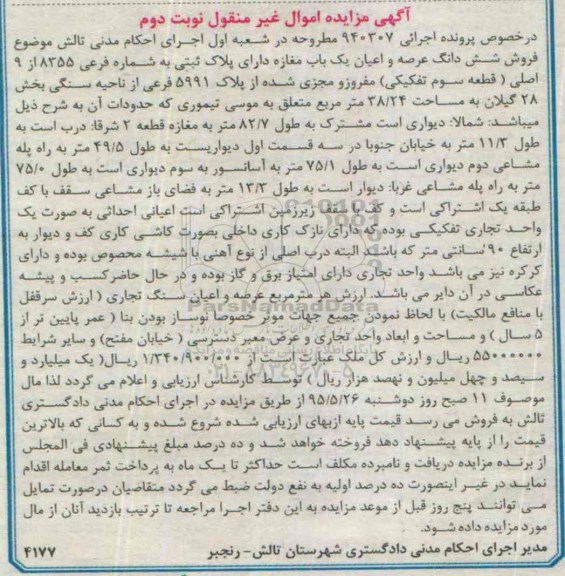 آگهی مزایده اموال غیر منقول نوبت دوم
درخصوص پرونده اجرائی ۹۴۰۳۰۷ مطروحه در شعبه اول اجرای احکام مدنی تالش موضوع
فروش شش دانگ عرصه و اعیان یک باب مغازه دارای پلاک ثبتی به شماره فرعی ۸۳۵۵ از ۹
اصلی ( قطعه سوم تفکیکی) مفروزو مجزی شده از پلاک ۵۹۹۱ فرعی از ناحیه سنگی بخش
۲۸ گیلان به مساحت ۳۸/۲۴ متر مربع متعلق به موسی تیموری که حدودات آن به شرح ذیل
میباشد: شمالا: دیواری است مشترک به طول ۸۲/۷ متر به مغازه قطعه ۲ شرقا: درب است به
طول ۱۱/۳ متر به خیابان جنوبا در سه قسمت اول دیواریست به طول ۴۹/۵ متر به راه پله
مشاعی دوم دیواری است به طول ۷۵/۱ متر به آسانسور به سوم دیواری است به طول ۷۵/۰
متر به راه پله مشاعی غربا: دیوار است به طول ۱۳/۳ متر به فضای باز مشاعی سقف با کف
طبقه یک اشتراکی است و کف با سقف زیرزمین اشتراکی است اعیانی احداثی به صورت یک
واحد تجاری تفکیکی بوده که دارای نازک کاری داخلی بصورت کاشی کاری کف و دیوار به
ارتفاع ۹۰ سانتی متر که باشد البته درب اصلی از نوع آهنی با شیشه محصوص بوده و دارای
کرکره نیز می باشد واحد تجاری دارای امتیاز برق و گاز بوده و در حال حاضر کسب و پیشه
عکاسی در آن دایر می باشد. ارزش هر مترمربع عرصه و اعیان سنگ تجاری ( ارزش سرقفل
با منافع مالکیت) با لحاظ نمودن جمیع جهات موثر خصوصا نوساز بودن بنا ( عمر پایین تر از
۵ سال ) و مساحت و ابعاد واحد تجاری و عرض معبر دسترسی ( خیابان مفتح) و سایر شرایط
۵۵۰۰۰۰۰۰ ریال و ارزش کل ملک عبارت است از ۱/۳۴۰/۹۰۰/۰۰۰ ریال( یک میلیارد و
سیصد و چهل میلیون و نهصد هزار ریال ) توسط کارشناس ارزیابی و اعلام می گردد لذا مال
موصوف ۱۱ صبح روز دوشنبه ۹۵/۵/۲۶ از طریق مزایده در اجرای احکام مدنی دادگستری
تالش به فروش می رسد قیمت پایه ازبهای ارزیابی شده شروع شده و به کسانی که بالاترین
قیمت را از پایه پیشنهاد دهد فروخته خواهد شد و ده درصد مبلغ پیشنهادی فی المجلس
از برنده مزایده دریافت و نامبرده مکلف است حداکثر تا یک ماه به پرداخت ثمر معامله اقدام
نماید در غیر اینصورت ده درصد اولیه به نفع دولت ضبط می گردد متقاضیان درصورت تمایل
می توانند پنج روز قبل از موعد مزایده به این دفتر اجرا مراجعه تا ترتیب بازدید آنان از مال
مورد مزایده داده شود.
مدیر اجرای احکام مدنی دادگستری شهرستان تالش- رنجبر ۴۱۷۷
ParsNamadData
۰۲۱-۸۸۳۴۹۶۷۰-۵